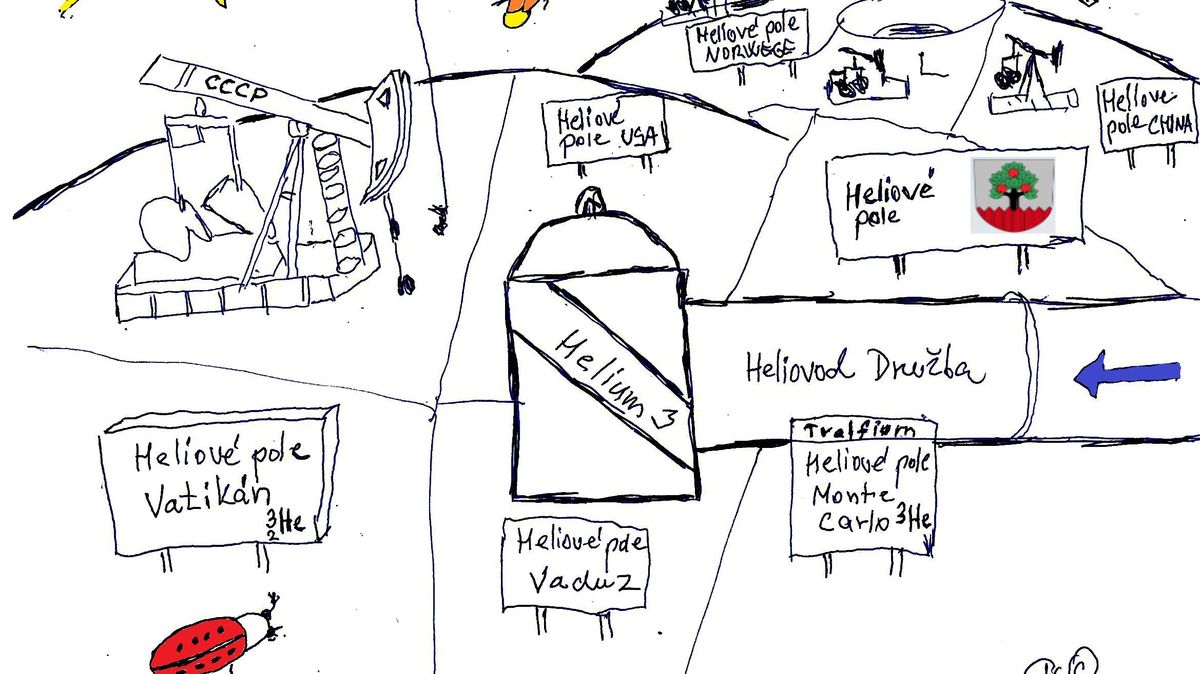 Heliové pole
NORWEGE
CCCP
Heliové
pole USA
Heliové
pole CHINA
Heliové
pole
Helium 3
Heliovod Družba
Tralfium
Heliové pole
Monte
Carlo 3He
Heliové pole
Vatikán
3
2He
Heliové pole
Vaduz